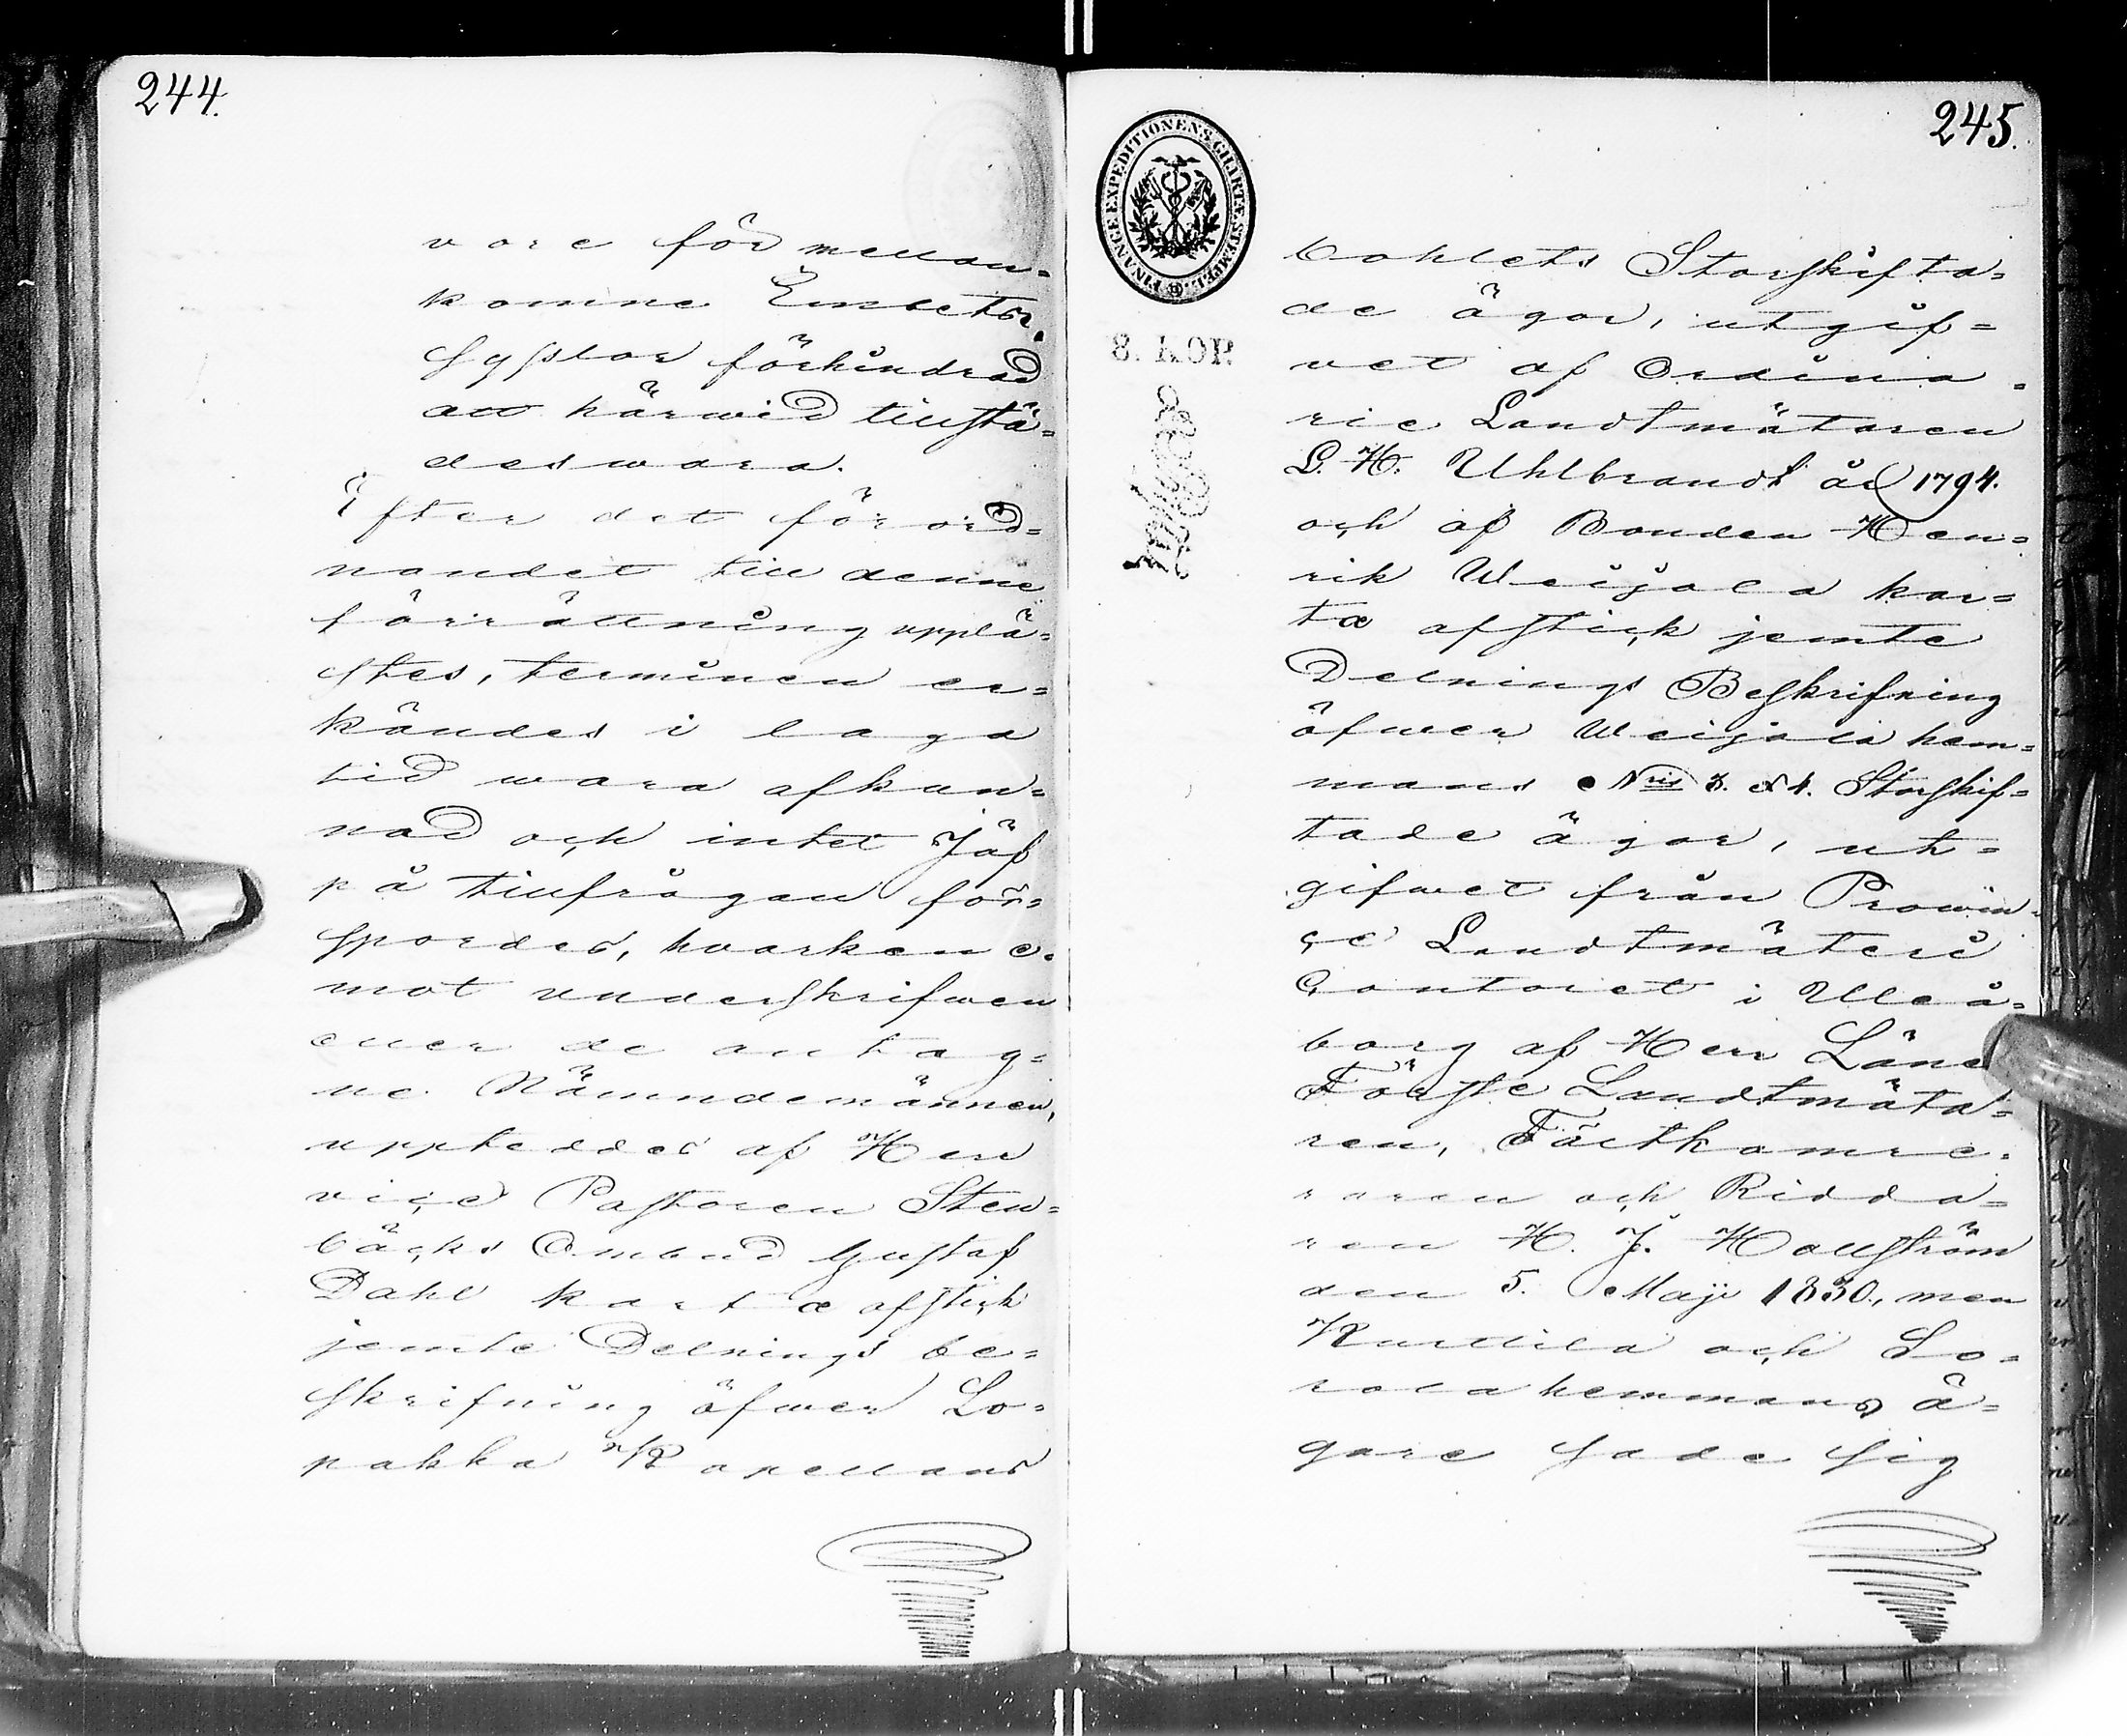 244.
vore för mellan=
komne Embets
Sysslor förhindrad
att härwid tillstä=
des wara.
Efter det förord=
nandet till denne
förrättning upplä=
stes, terminen er=
kändes i laga
tid wara afkun=
nad och intet Jäf
på tillfrågan för=
spordes, hvarken e=
mot underskrifwen
eller de antag=
ne Nämndemännen,
uppteddes af Herr
vice Pastoren Sten=
bäcks Ombud Gustaf
Dahl kartæ afstick
jemte Delnings be=
skrifning öfwer Lo=
pakka Kapellans
245.
FINANCE EXPEDITIONENS CHARTÆ STEMPEL.
8. KOP.
bohlets Storskifta=
de ägor, utgif=
vet af Ordina=
rie Landtmätaren
L. H. Uhlbrandt år 1794.
och af Bonden Hen=
rik Weijola kar=
tæ afstick jemte
Delnings Beskrifning
öfwer Weijola hem=
mans Nris 3. & 4. Storskif=
tade ägor, ut=
gifwet från Provin=
ce Landtmäteri
Contoret i Uleå=
borg af Herr Läne
Förste Landtmäta=
ren, Fältkamre=
raren och Ridda=
ren H. J. Hallström
den 5. Maji 1830., men
Kurttila och Lo=
rola hemmans ä=
gare sade sig